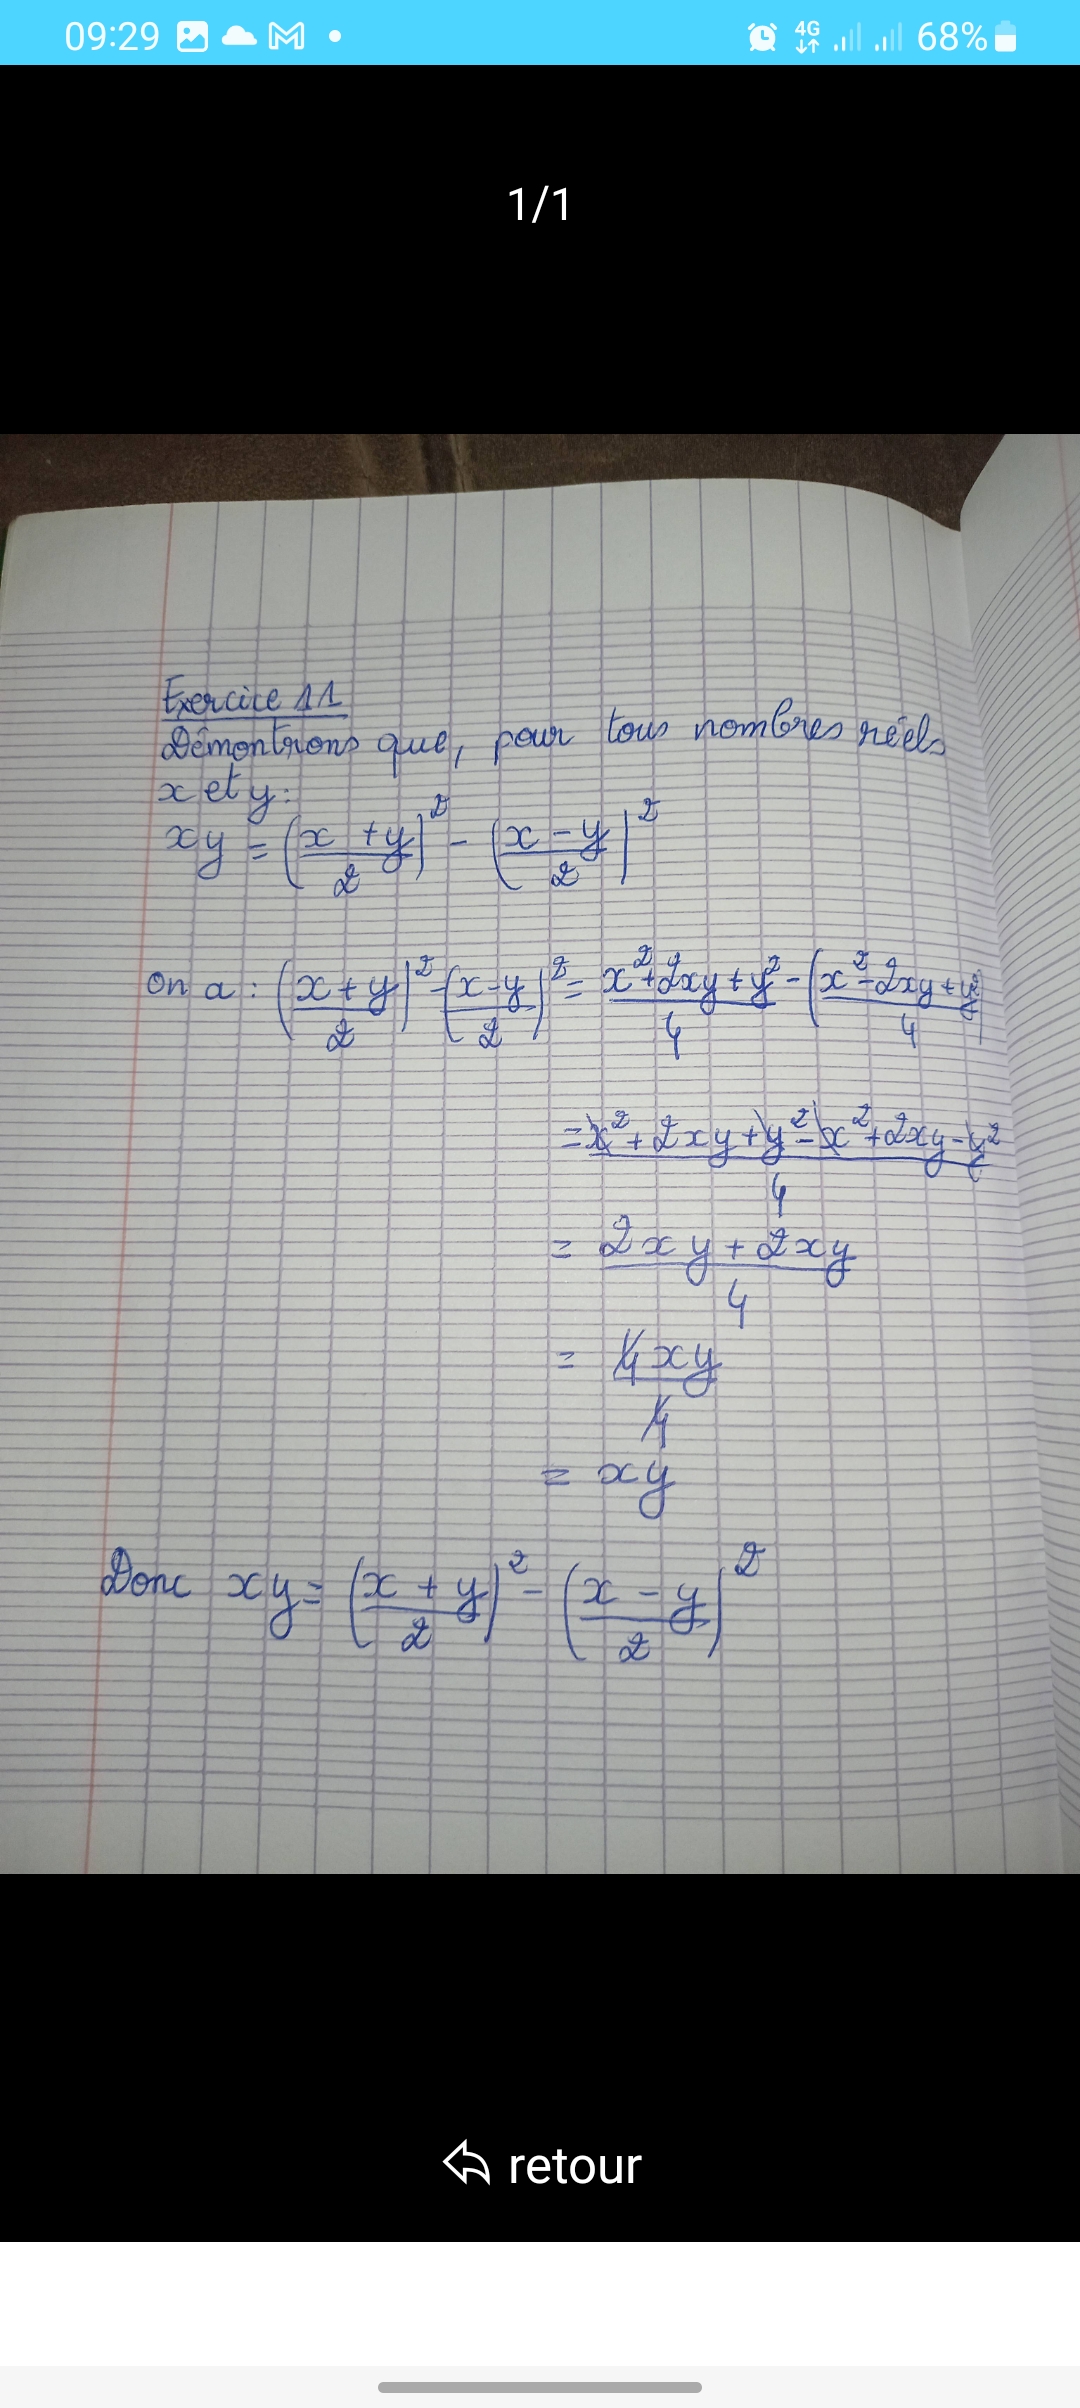 09:29 4G 68%
1/1
Exercice 11
Démontrons que, pour tous nombres réels
x et y:
xy = (x + y / 2)² - (x - y / 2)²
on a : (x + y / 2)² - (x - y / 2)² = x² + 2xy + y² / 4 - (x² - 2xy + y² / 4)
= x² + 2xy + y² - x² + 2xy - y² / 4
= 2xy + 2xy / 4
= 4xy / 4
= xy
Donc xy = (x + y / 2)² - (x - y / 2)²
retour